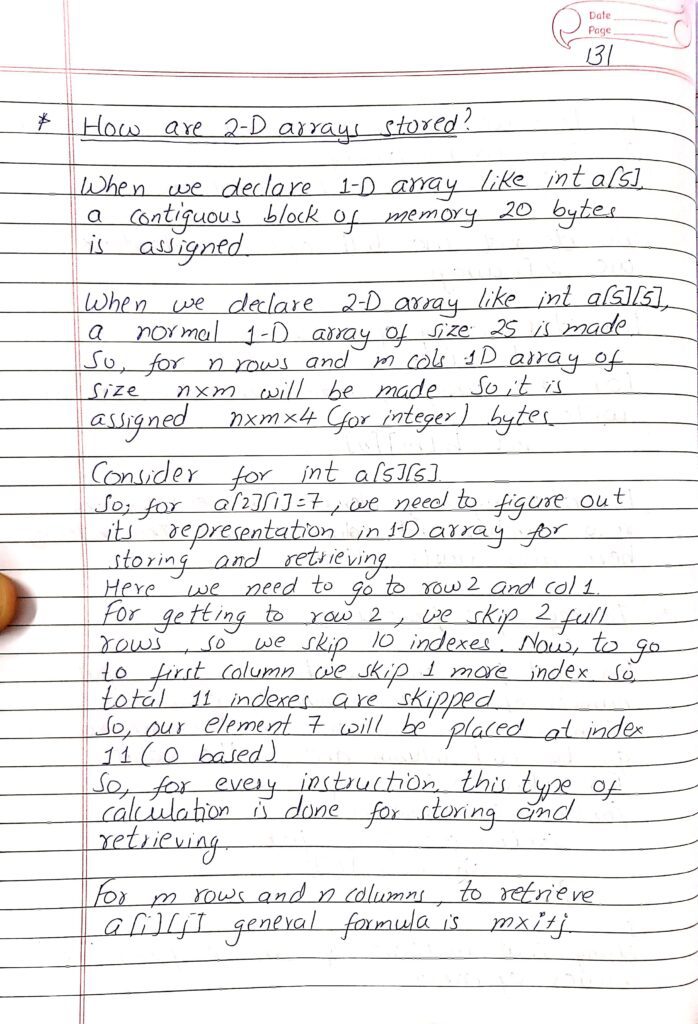 Date
Page
131
* How are 2-D arrays stored?
When we declare 1-D array like int a[5],
a contiguous block of memory 20 bytes
is assigned.
When we declare 2-D array like int a[5][5],
a normal 1-D array of size 25 is made.
So, for n rows and m cols 1D array of
size n×m will be made. So it is
assigned n×m×4 (for integer) bytes.
Consider for int a[5][5].
So, for a[2][1]=7, we need to figure out
its representation in 1-D array for
storing and retrieving.
Here we need to go to row 2 and col 1.
For getting to row 2, we skip 2 full
rows, so we skip 10 indexes. Now, to go
to first column we skip 1 more index. So,
total 11 indexes are skipped.
So, our element 7 will be placed at index
11 (0 based)
So, for every instruction, this type of
calculation is done for storing and
retrieving.
For m rows and n columns, to retrieve
a[i][j] general formula is m×i+j.